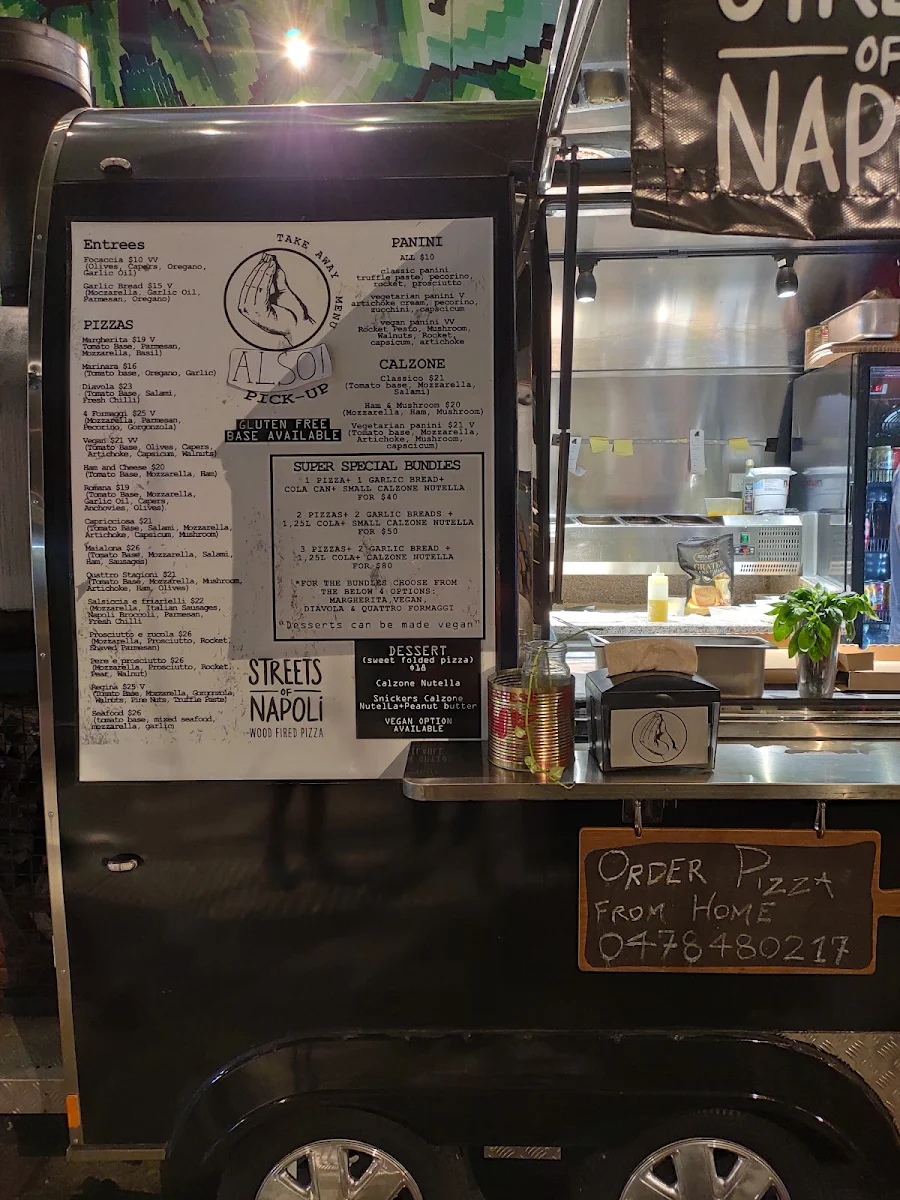 STRE
OF
NAP
Entrees
Focaccia $10 VV
(Olives, Capers, Oregano,
Garlic Oil)
Garlic Bread $15 V
(Mozzarella, Garlic Oil,
Parmesan, Oregano)
PIZZAS
Margherita $19 V
Tomato Base, Parmesan,
Mozzarella, Basil)
Marinara $16
(Tomato base, Oregano, Garlic)
Diavola $23
(Tomato Base, Salami,
Fresh Chilli)
4 Formaggi $25 V
(Mozzarella, Parmesan,
Pecorino, Gorgonzola)
Vegan $21 VV
(Tomato Base, Olives, Capers,
Artichoke, Capsicum, Walnuts)
Ham and Cheese $20
(Tomato Base, Mozzarella, Ham)
Romana $19
(Tomato Base, Mozzarella,
Garlic Oil, Capers,
Anchovies, Olives)
Capricciosa $21
(Tomato Base, Salami, Mozzarella,
Artichoke, Capsicum, Mushroom)
Maialona $26
(Tomato Base, Mozzarella, Salami,
Ham, Sausages)
Quattro Stagioni $21
(Tomato Base, Mozzarella, Mushroom,
Artichoke, Ham, Olives)
Salsiccia e friarielli $22
(Mozzarella, Italian Sausages,
Napoli Broccoli, Parmesan,
Fresh Chilli
Prosciutto e rucola $26
(Mozzarella, Prosciutto, Rocket,
Shaved Parmesan)
Pere e prosciutto $26
(Mozzarella, Prosciutto, Rocket,
Pear, Walnut)
Regina $25 V
(Tomato Base, Mozzarella, Gorgonzola,
Walnuts, Pine Nuts, Truffle Paste)
Seafood $26
(tomato base, mixed seafood,
mozzarella, garlic)
TAKE AWAY MENU
ALSO!
PICK-UP
GLUTEN FREE
BASE AVAILABLE
PANINI
ALL $10
classic panini
truffle paste, pecorino,
rocket, prosciutto
vegetarian panini V
artichoke cream, pecorino,
zucchini, capsicum
vegan panini VV
Rocket Pesto, Mushroom,
Walnuts, Rocket,
capsicum, artichoke
CALZONE
Classico $21
(Tomato base, Mozzarella,
Salami)
Ham & Mushroom $20
(Mozzarella, Ham, Mushroom)
Vegetarian panini $21 V
(Tomato base, Mozzarella,
Artichoke, Mushroom,
capsicum)
SUPER SPECIAL BUNDLES
1 PIZZA+ 1 GARLIC BREAD+
COLA CAN+ SMALL CALZONE NUTELLA
FOR $40
2 PIZZAS+ 2 GARLIC BREADS +
1,25L COLA+ SMALL CALZONE NUTELLA
FOR $50
3 PIZZAS+ 2 GARLIC BREAD +
1,25L COLA+ CALZONE NUTELLA
FOR $80
*FOR THE BUNDLES CHOOSE FROM
THE BELOW 4 OPTIONS:
MARGHERITA, VEGAN,
DIAVOLA & QUATTRO FORMAGGI
"Desserts can be made vegan"
STREETS
OF
NAPOLI
-WOOD FIRED PIZZA
DESSERT
(sweet folded pizza)
$18
Calzone Nutella
Snickers Calzone
Nutella+Peanut butter
VEGAN OPTION
AVAILABLE
ORDER PIZZA
FROM HOME
0478480217